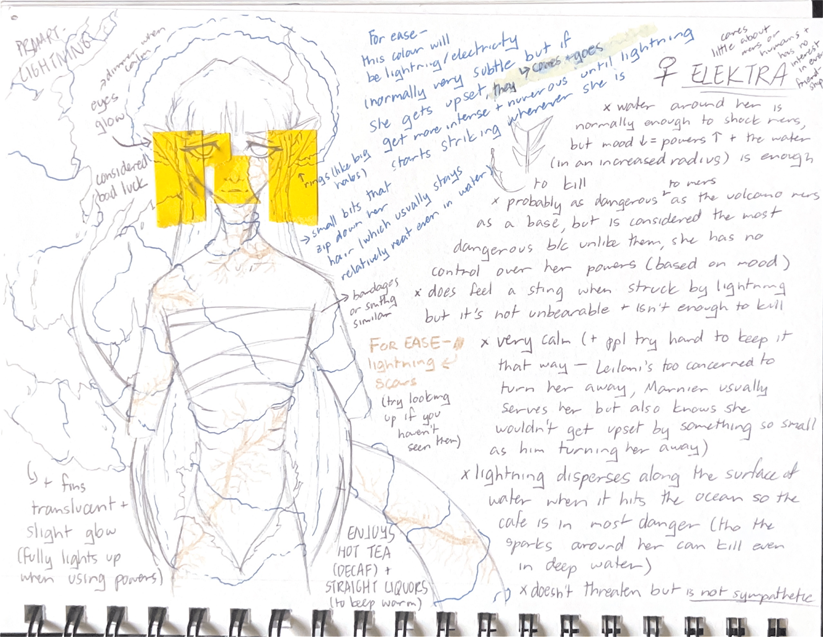 PROMPT-
LIGHTNING!
→ dimmer when
calm
eyes
glow
considered
bad luck
For ease-
this colour will
be lightning/electricity
(normally very subtle but if
she gets upset, they → comes + goes
get more intense + numerous until lightning
starts striking wherever she is
↑
rings (like big
hoops)
→ small bits that
zip down her
hair (which usually stays
relatively neat even in water)
→ bandages
or smthg
similar
FOR EASE-
lightning
scars
(try looking
up if you
haven't
seen them)
↳ + fins
translucent +
slight glow
(fully lights up
when using powers)
ENJOYS
HOT TEA
(DECAF) +
STRAIGHT LIQUORS
(to keep warm)
cares
little about
mers or
humans +
has no
interest
in ever
friend-
ship
♀ ELEKTRA
x water around her is
normally enough to shock mers,
but mood ↓ = powers ↑ + the water
(in an increased radius) is enough
to kill
x probably as dangerous to mers as the volcano mers
as a base, but is considered the most
dangerous b/c unlike them, she has no
control over her powers (based on mood)
x does feel a sting when struck by lightning
but it's not unbearable + isn't enough to kill
x very calm (+ ppl try hard to keep it
that way - Leilani's too concerned to
turn her away, Mannien usually
serves her but also knows she
wouldn't get upset by something so small
as him turning her away)
x lightning disperses along the surface of
water when it hits the ocean so the
cafe is in most danger (tho the
sparks around her can kill even
in deep water)
x doesn't threaten but is not sympathetic